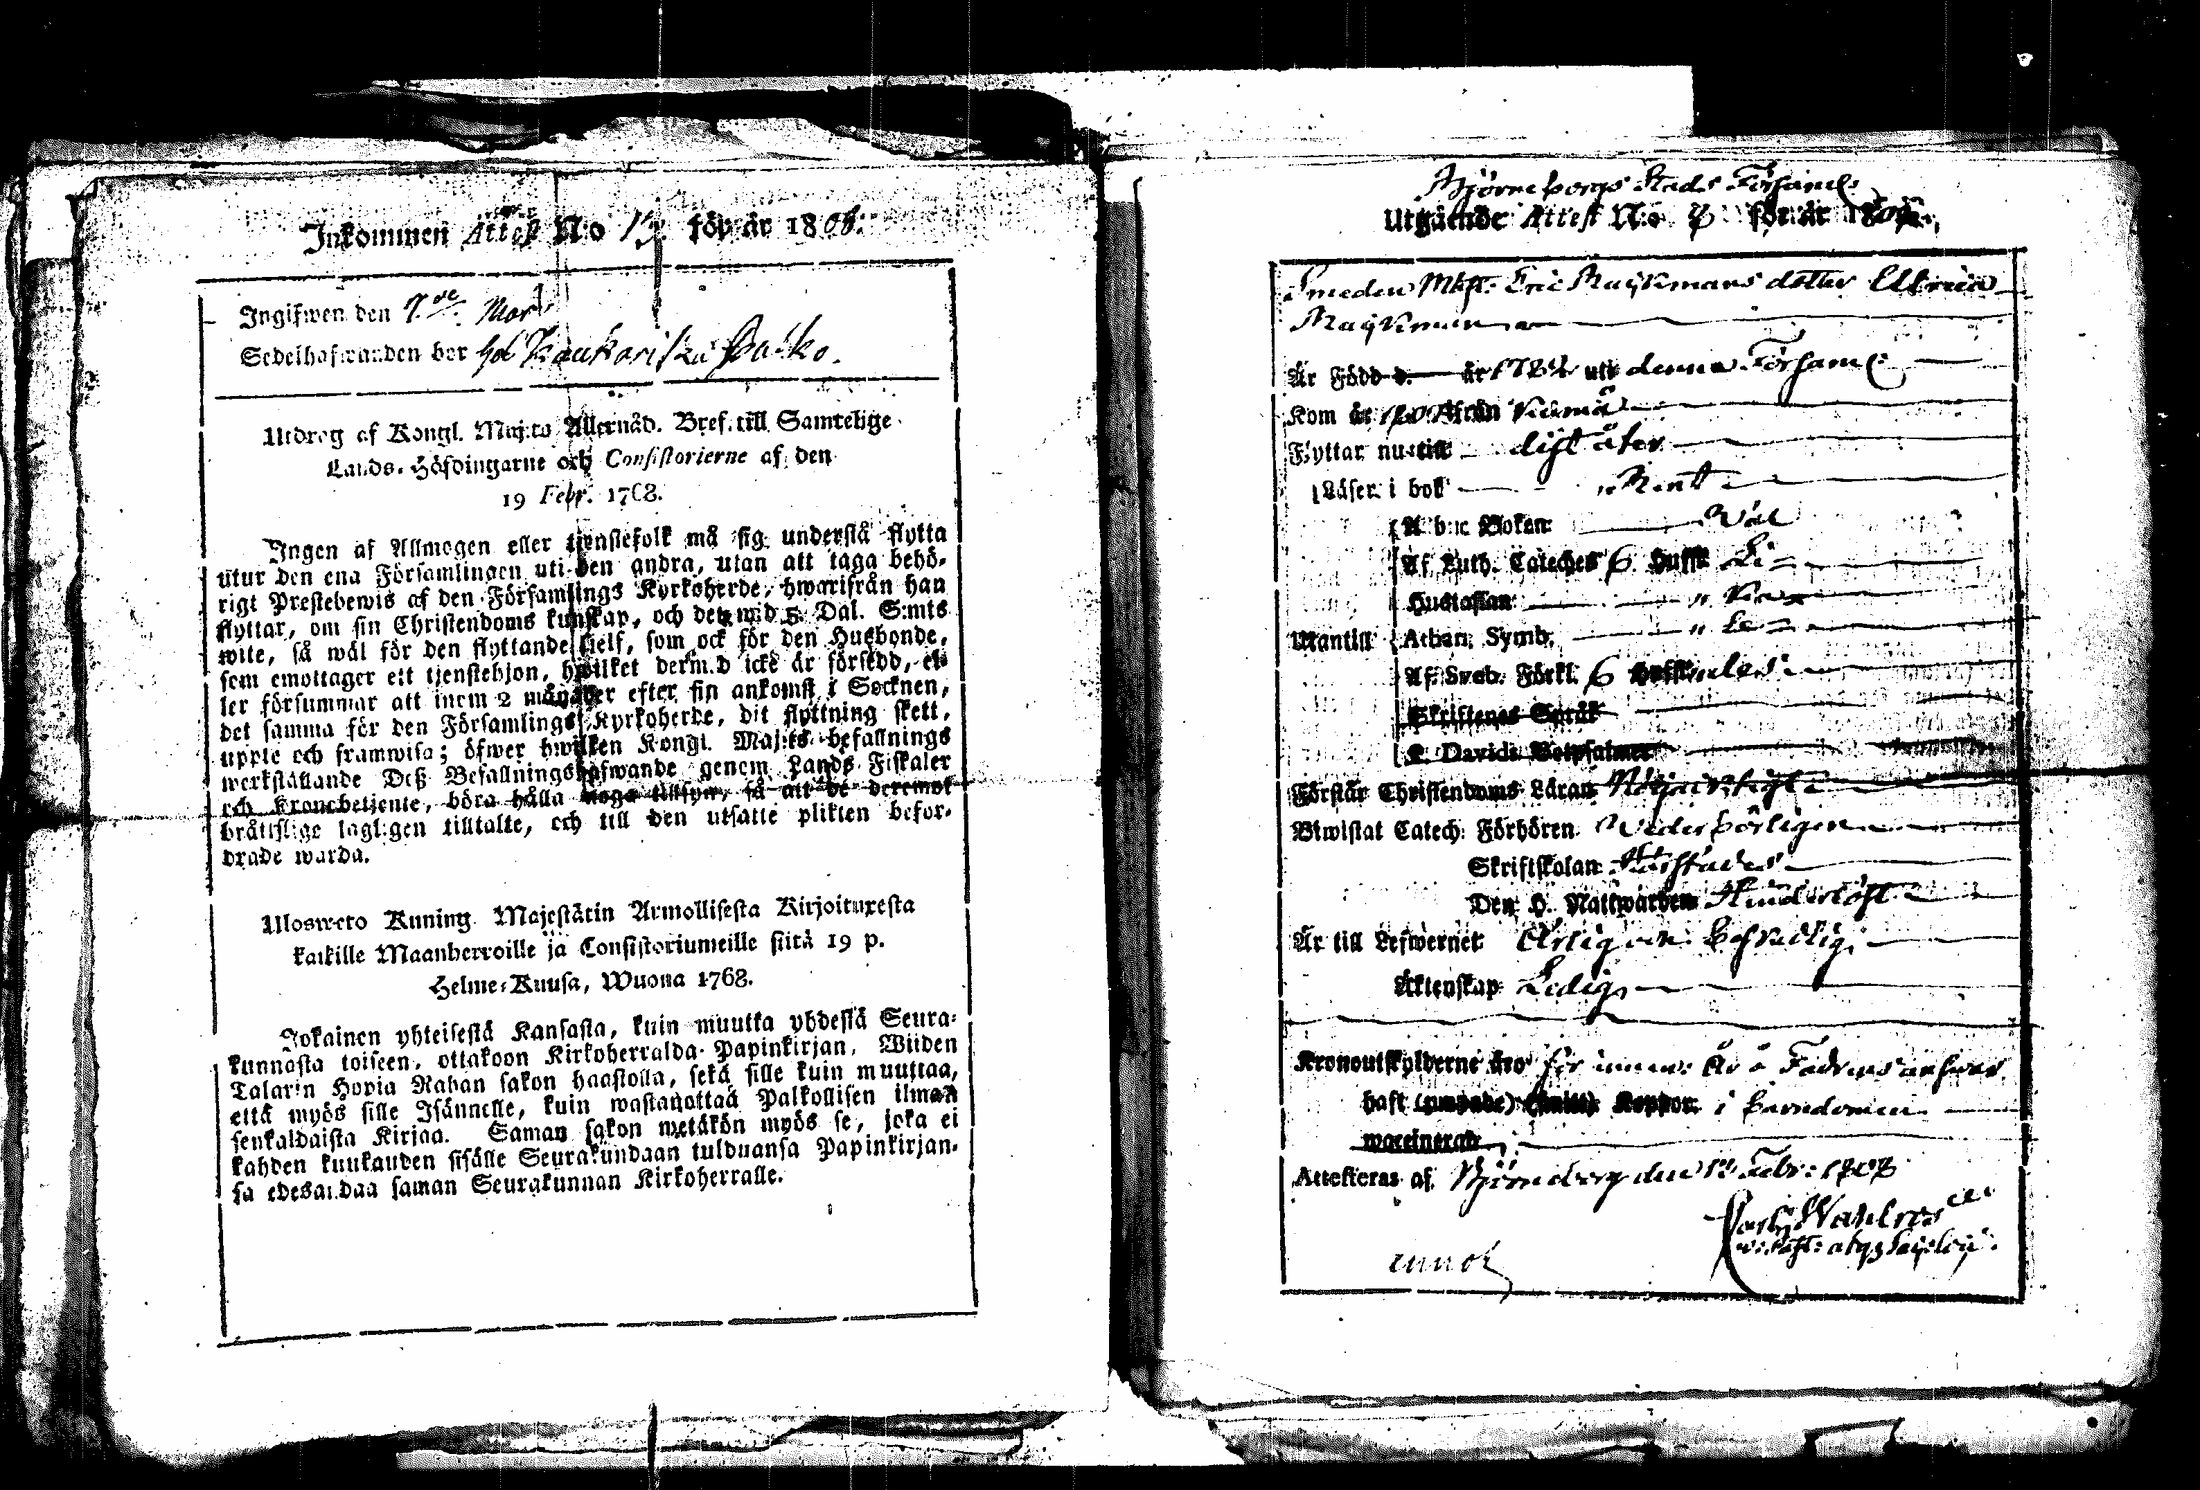 Inkommen Attest N:o 13 för år 1808.
Ingifwen den 7.de Mar
Sedelhafwanden bor
Utdrag af Kongl. Maj:ts Allernåd. Bref till Samtelige
Lands-Höfdingarne och Consistorierne af den
19 Febr. 1768.
Ingen af Allmogen eller tjenstefolk må sig understå flytta
utur den ena Församlingen uti den andra, utan att taga behö-
rigt Prestebewis af den Församlings Kyrkoherde, hwarifrån han
flyttar, om sin Christendoms kunskap, och det wid 5 Dal. S:mts
wite, så wäl för den flyttande sielf, som ock för den Husbonde,
som emottager ett tjenstehjon, hwilket dermed icke är försedd, el-
ler försummar att inem 2 månader efter sin ankomst i Socknen,
det samma för den Församlings Kyrkoherde, dit flyttning skett,
uppte och framwisa; öfwer hwilken Kongl. Maj:ts befallnings
werkställande Deß Befallningshafwande genom Lands-Fiskaler
och Kronobetjente, böra hålla noga tillsyn, så att de deremot
bråttslige lagligen tilltalte, och till den utsatte plikten befor-
drade warda.
Ulosweto Kuning. Majestätin Armollisesta Kirjoituxesta
kaikille Maanherroille ja Consistoriumeille siitä 19 p.
Helme-Kuusa, Wuona 1768.
Jokainen yhteisestä Kansasta, kuin muutta yhdestä Seura-
kunnasta toiseen, ottakoon Kirkoherralda Papinkirjan, Wiiden
Talarin Hopia Rahan sakon haastolla, sekä sille kuin muuttaa,
että myös sille Isännelle, kuin wastaanottaa Palkollisen ilman
senkaldaista Kirjaa. Saman sakon wetäkön myös se, joka ei
kahden kuukauden sisälle Seurakundaan tulduansa Papinkirjan-
sa edesandaa saman Seurakunnan Kirkoherralle.
Björneborgs Stads Församl:
Utgående Attest N:o 8 för år 1808.
Smeden Eric dotter Ulrica
Är Född d. år 178 uti denna Församl:
Kom år från Kumå
Flyttar nu till dijt åter
Läser i bok Rent
A b c Boken Wäl
Af Luth. Cateches 6 Hufst.
Hustaflan
Mantill Athan. Symb.
Af Sveb. Förkl. 6
Skriftenes Språk
P. Davids Botpsalmer
Förstår Christendoms Läran Nöjacktigt
Biwistat Catech. Förhören Wederbörligen
Skriftskolan
Den H. Nattwarden Hinderlöst
Är till Lefwernet Ärlig och beskedlig
Äktenskap Ledig
Kronoutskylderne äro för innew: År å Fadrens answar
haft Koppor i barndomen
waccinerad
Attesteras af Björneborg den Febr: 1808